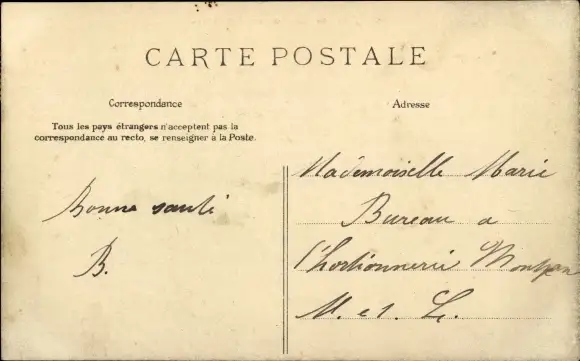 CARTE POSTALE
Correspondance
Tous les pays étrangers n'acceptent pas la
correspondance au recto, se renseigner à la Poste.
Bonne santé
B.
Adresse
Mademoiselle Marie
Bureau a
l'hortionnerie
M. et L.